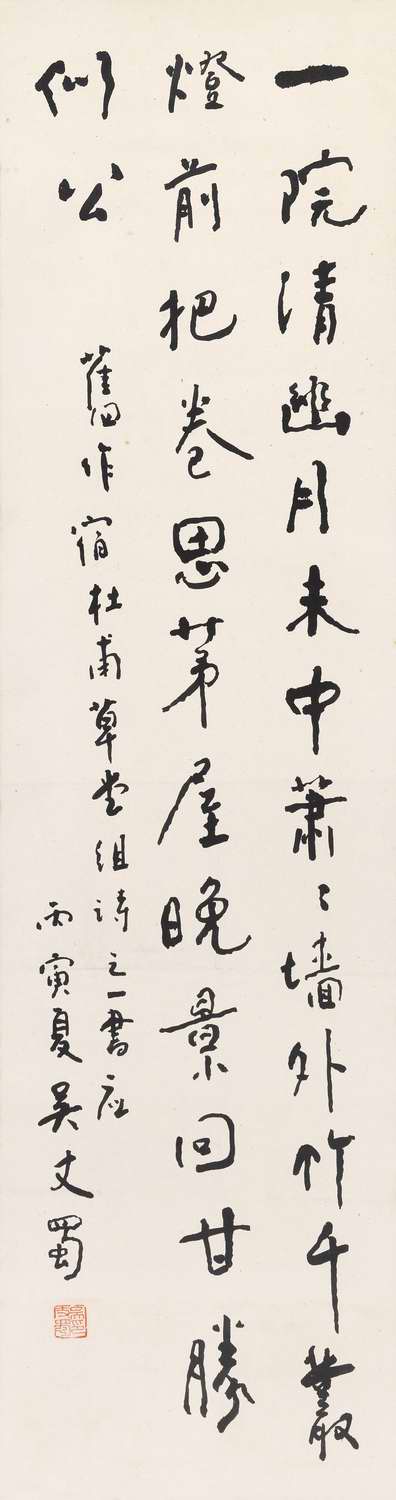 一院清幽月未中蕭〻墻外竹千叢
燈前把卷思茅屋晚景回甘勝
似公
舊作宿杜甫草堂組詩之一書應
丙寅夏吴丈蜀